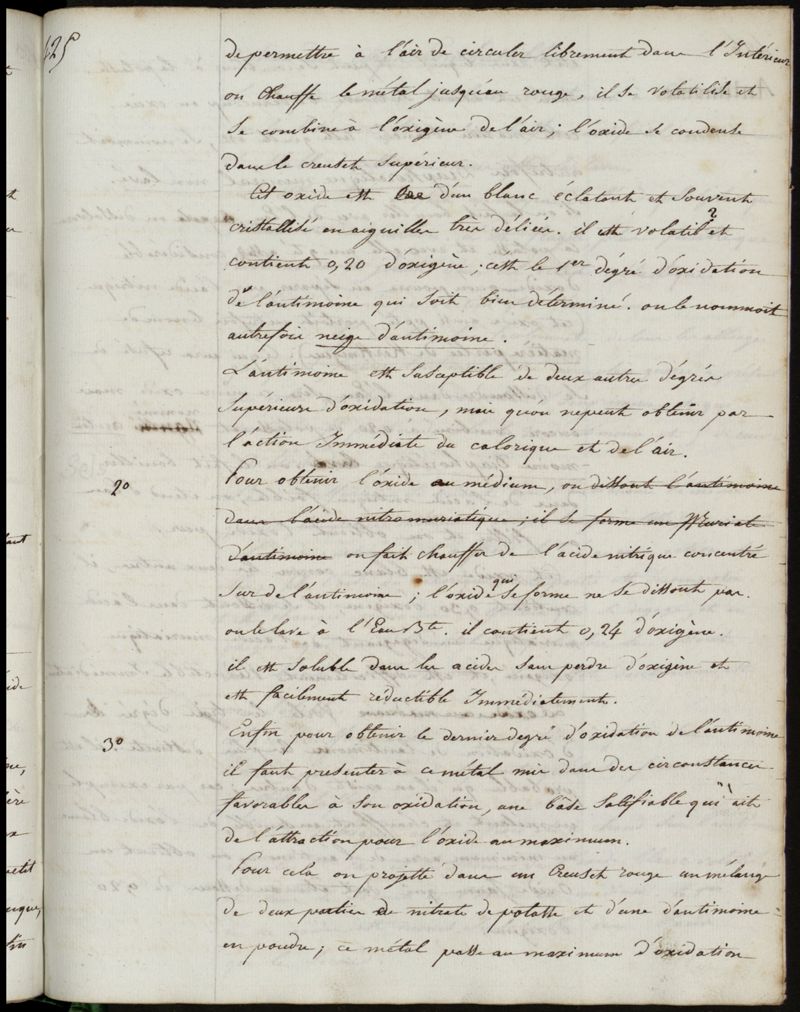 125
de permettre à l'air de circuler librement dans l'Intérieur
on Chauffe le métal jusqu'au rouge, il se volatilise et
se combine à l'oxigène de l'air; l'oxide se condense
dans le creuset supérieur.
Cet oxide est d'un blanc éclatant et souvent
cristallisé en aiguilles très déliées. il est volatil ? et
contient 0,20 d'oxigène; c'est le 1er dégré d'oxidation
de l'antimoine qui soit bien déterminé. on le nommoit
autrefois neige d'antimoine.
L'antimoine est susceptible de deux autres dégrés
supérieurs d'oxidation, mais qu'on ne peut obtenir par
l'action Immédiate du calorique et de l'air.
2o Pour obtenir l'oxide au médium, on dissout l'antimoine
dans l'acide nitromuriatique; il se forme un Muriate
d'antimoine on fait chauffer de l'acide nitrique concentré
sur de l'antimoine; l'oxide qui se forme ne se dissout pas.
on le lave à l'Eau Bte. il contient 0,24 d'oxigène.
il est soluble dans les acides sans perdre d'oxigène et
est facilement réductible Immédiatement.
3o Enfin pour obtenir le dernier degré d'oxidation de l'antimoine
il faut presenter à ce métal mis dans des circonstances
favorables à son oxidation, une base salifiable qui ait
de l'attraction pour l'oxide au maximum.
Pour cela on projette dans un Creuset rouge un mélange
de deux parties de nitrate de potasse et d'une d'antimoine
en poudre; ce métal passe au maximum d'oxidation